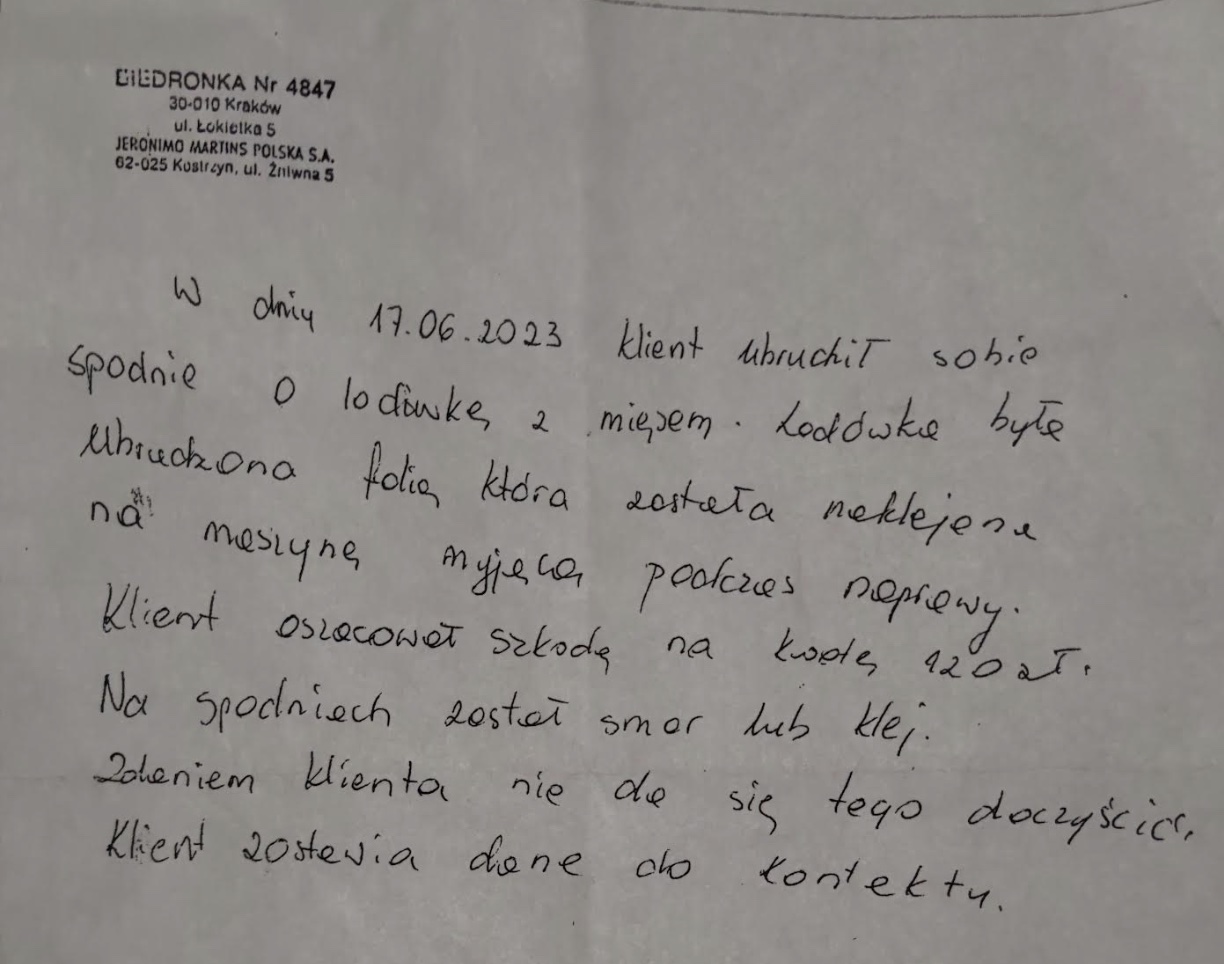 BIEDRONKA Nr 4847
30-010 Kraków
ul. Łokietka 5
JERONIMO MARTINS POLSKA S.A.
62-025 Kostrzyn, ul. Żniwna 5
W dniu 17.06.2023 klient ubrudził sobie
spodnie o lodówkę z mięsem. Lodówka była
ubrudzona folią która została naklejona
na maszynę myjącą podczas naprawy.
Klient oszacował szkodę na kwotę 120 zł.
Na spodniach został smar lub klej.
Zdaniem klienta nie da się tego doczyścić.
Klient zostawia dane do kontaktu.